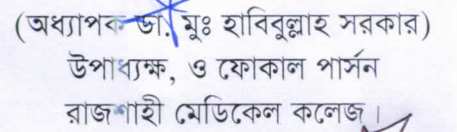 (অধ্যাপক ডা. মুঃ হাবিবুল্লাহ সরকার)
উপাধ্যক্ষ, ও ফোকাল পার্সন
রাজশাহী মেডিকেল কলেজ।